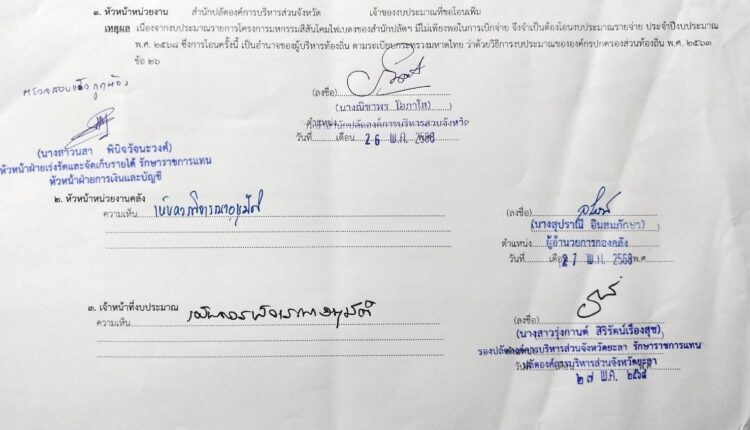 ๑. หัวหน้าหน่วยงาน สำนักปลัดองค์การบริหารส่วนจังหวัด เจ้าของงบประมาณที่ขอโอนเพิ่ม
เหตุผล เนื่องจากงบประมาณรายการโครงการมหกรรมสีสันโคมไฟเบตงของสำนักปลัดฯ มีไม่เพียงพอในการเบิกจ่าย จึงจำเป็นต้องโอนงบประมาณรายจ่าย ประจำปีงบประมาณ
พ.ศ. ๒๕๖๘ ซึ่งการโอนครั้งนี้ เป็นอำนาจของผู้บริหารท้องถิ่น ตามระเบียบกระทรวงมหาดไทย ว่าด้วยวิธีการงบประมาณขององค์กรปกครองส่วนท้องถิ่น พ.ศ. ๒๕๖๓
ข้อ ๒๖
ตรวจสอบแล้วถูกต้อง
(ลงชื่อ)
(นางณิชาพร โอภาโส)
ตำแหน่ง หัวหน้าสำนักปลัดองค์การบริหารส่วนจังหวัด
วันที่ เดือน 26 พ.ค. 2568
(นางสาวนสา พินิจวัจนะวงศ์)
หัวหน้าฝ่ายเร่งรัดและจัดเก็บรายได้ รักษาราชการแทน
หัวหน้าฝ่ายการเงินและบัญชี
๒. หัวหน้าหน่วยงานคลัง
ความเห็น เห็นควรพิจารณาอนุมัติ
(ลงชื่อ)
(นางสุปราณี อินสมภักษร)
ตำแหน่ง ผู้อำนวยการกองคลัง
วันที่ เดือน 27 พ.ค. 2568 พ.ศ.
๓. เจ้าหน้าที่งบประมาณ
ความเห็น เห็นควรพิจารณาอนุมัติ
(ลงชื่อ)
(นางสาวรุ่งกานต์ สิริรัตน์เรืองสุข)
รองปลัดองค์การบริหารส่วนจังหวัดยะลา รักษาราชการแทน
ปลัดองค์การบริหารส่วนจังหวัดยะลา
วันที่ ๒๗ พ.ค. ๒๕๖๘